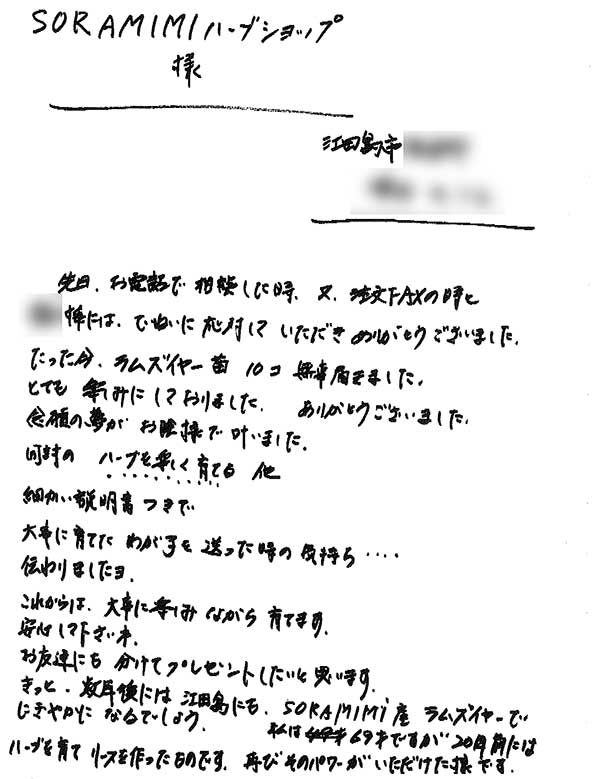 SORAMIMIハーブショップ
様
江田島市
先日、お電話で相談した時、又、注文FAXの時と
様には、ていねいに応対していただきありがとうございました。
たった今、ラムズイヤー苗 10コ 無事届きました。
とても楽しみにしておりました。 ありがとうございました。
念願の夢がお陰様で叶いました。
同封の ハーブを楽しく育てる 他
細かい説明書つきで
大事に育てたわが子を送った時の気持ち・・・・
伝わりましたヨ。
これからは、大事に楽しみながら育てます。
安心して下さいネ。
お友達にも分けてプレゼントしたいと思います。
きっと、数年後には江田島にも、SORAMIMI産 ラムズイヤーで
にぎやかになるでしょう。
私は 69才ですが20年前には
ハーブを育てリースを作ったものです。再びそのパワーがいただけた様です。